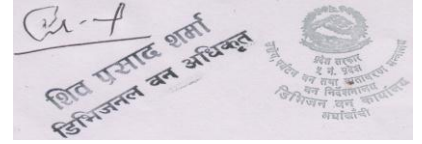 शिव प्रसाद शर्मा
डिभिजनल वन अधिकृत
प्रदेश सरकार
वन तथा वातावरण
वन निर्देशनालय
डिभिजन वन कार्यालय
अर्घाखाँची